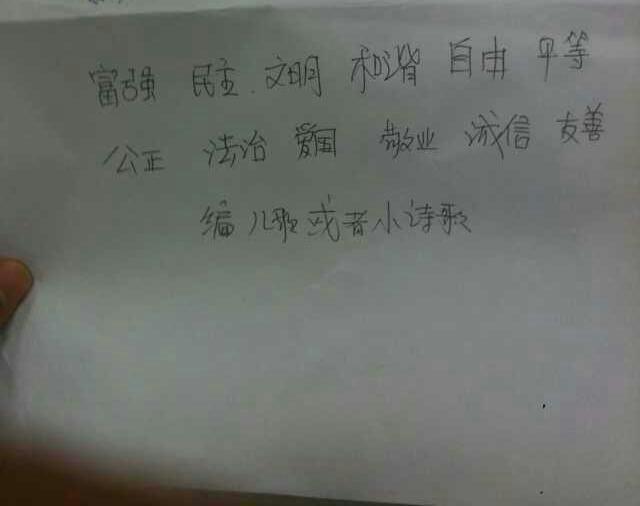 富强 民主 文明 和谐 自由 平等
公正 法治 爱国 敬业 诚信 友善
编儿歌或者小诗歌